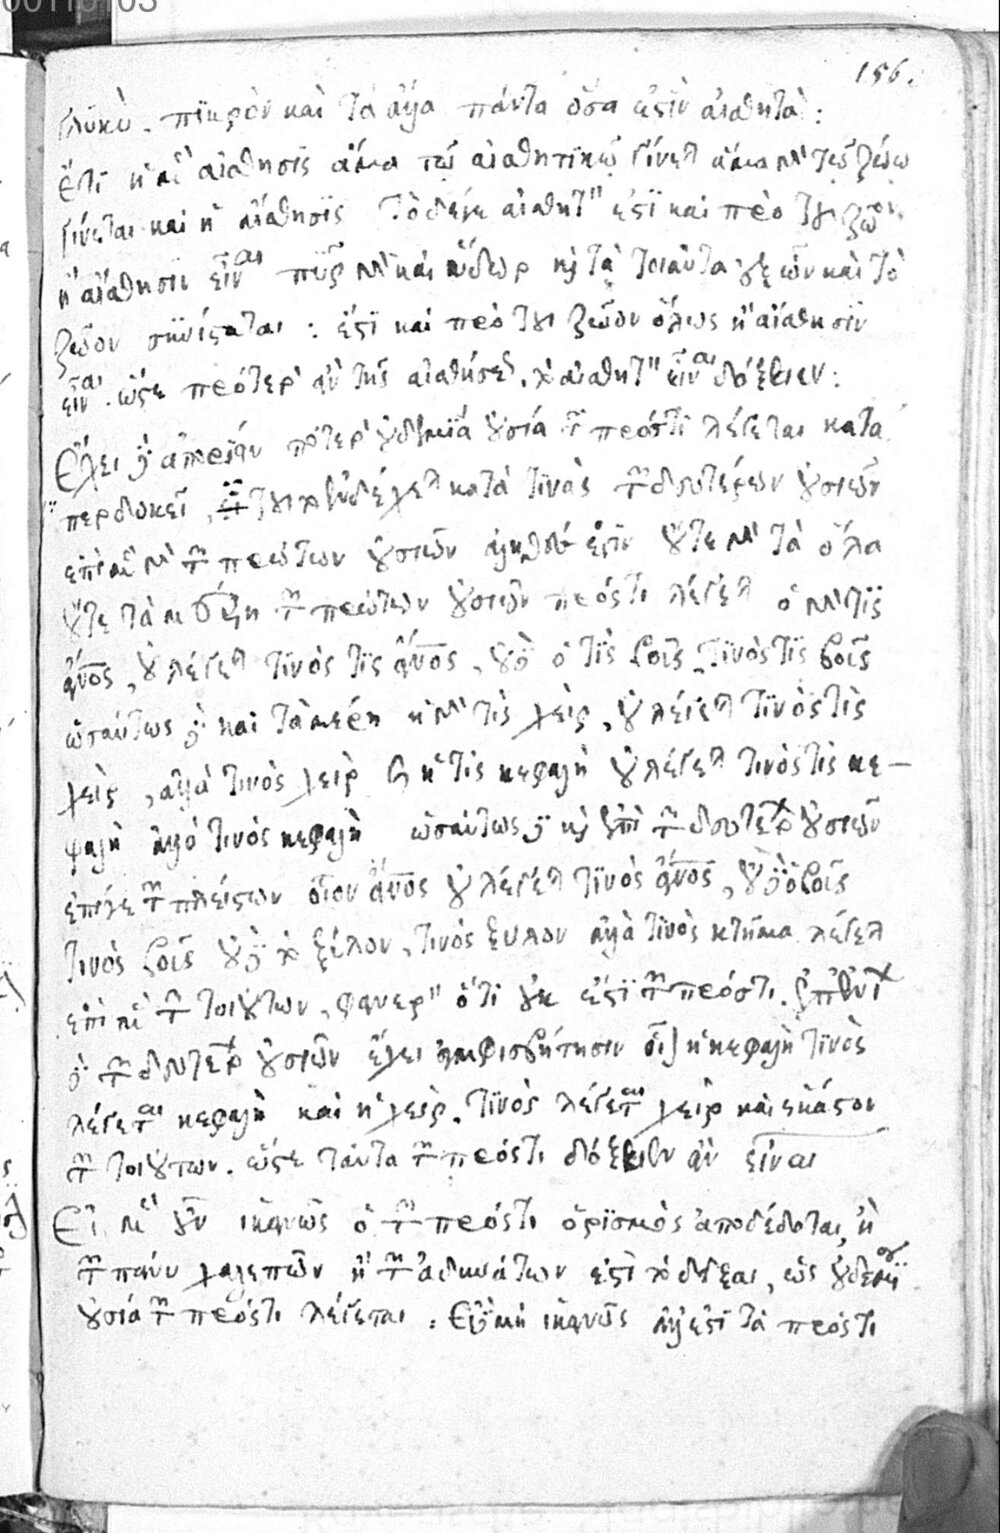 156.
γλυκὺ. πϊκρὸν καὶ τὰ ἄλλα πάντα ὅσα ἐςὶν αἰσθητὰ:
ἔτι ἡ μὲν αἴσθησϊς ἅμα τῷ αἰσθητικῷ γίνεται ἅμα μὲν τῷ ζώῳ
γίνεται καὶ ἡ αἴσθησϊς τὸ δέγε αἰσθητὸν ἐςὶ καὶ πρὸ τοῦ ζῷον
ἢ αἴσθησιν εἶναι πῦρ μὲν καὶ ὕδωρ καὶ τὰ τοιαῦτα ἐξ ὧν καὶ τὸ
ζῶον συνίςαται: ἐςὶ καὶ πρὸ τοῦ ζῶον ὅλως ἢ αἴσθησϊν
εἶναι. ὥςε πρότερον ἂν τῆς αἰσθήσεως τὸ αἰσθητὸν εἶναι δόξειεν:
Ἔχει δὲ ἀπορίαν πότερον οὐδεμϊᾶ οὐσία τῶν πρόςτι λέγεται καθά
περ δοκεῖ, ἢ τοῦτο ἐνδέχεται κατὰ τϊνὰς τῶν δευτέρων οὐσιῶν
ἐπὶ μὲν γὰρ τῶν πρώτων οὐσιῶν ἀληθὲς ἐςὶν οὔτε γὰρ τὰ ὅλα
οὔτε τὰ μέρη τῶν πρώτων οὐσιῶν πρόςτι λέγεται ὁ γὰρ τϊς
ἄνος, οὐ λέγεται τϊνὸς τϊς ἄνος, οὐδὲ ὁ τὶς βοῦς, τϊνὸς τϊς βοῦς
ὡσαύτως δὲ καὶ τὰ μέρη ἡ γὰρ τὶς χεὶρ, οὐ λέγεται τϊνὸς τὶς
χεὶρ, ἀλλὰ τινὸς χεὶρ καὶ ἡ τὶς κεφαλὴ οὐ λέγεται τινὸς τὶς κε-
φαλὴ ἀλλὰ τινὸς κεφαλὴ ὡσαύτως δὲ καὶ ἐπὶ τῶν δευτέρων οὐσιῶν
ἐπίγε τῶν πλείςων οἷον ἄνος οὐ λέγεται τϊνὸς ἄνος, οὐδὲ ὁ βοῦς
τινὸς βοῦς οὐδὲ τὸ ξύλον, τινὸς ξυλον ἀλλὰ τϊνὸς κτῆμα λέγεται
ἐπὶ μὲν τῶν τοιούτων, φανερὸν ὅτι οὐκ ἐςὶ τῶν πρόςτι. ἐπ' ἐνίων
δὲ τῶν δευτέρων οὐσιῶν ἔχει ἀμφισβήτησιν οἷον ἡ κεφαλὴ τϊνὸς
λέγεται κεφαλὴ καὶ ἡ χεὶρ. τϊνὸς λέγεται χεὶρ καὶ ἕκαςον
τῶν τοιούτων. ὥςε ταῦτα τῶν πρόςτι δόξειεν ἂν εἶναι
Εἰ μὲν οὖν ἱκανῶς ὁ τῶν πρόςτι ὁρϊσμὸς ἀποδέδοται, ἢ
τῶν πάνυ χαλεπῶν ἢ τῶν ἀδυνάτων ἐςὶ τὸ δεῖξαι, ὡς οὐδεμία
οὐσία τῶν πρόςτι λέγεται: Εἰ δὲ μὴ ἱκανῶς ἀλλ' ἐςὶ τὰ πρόςτι